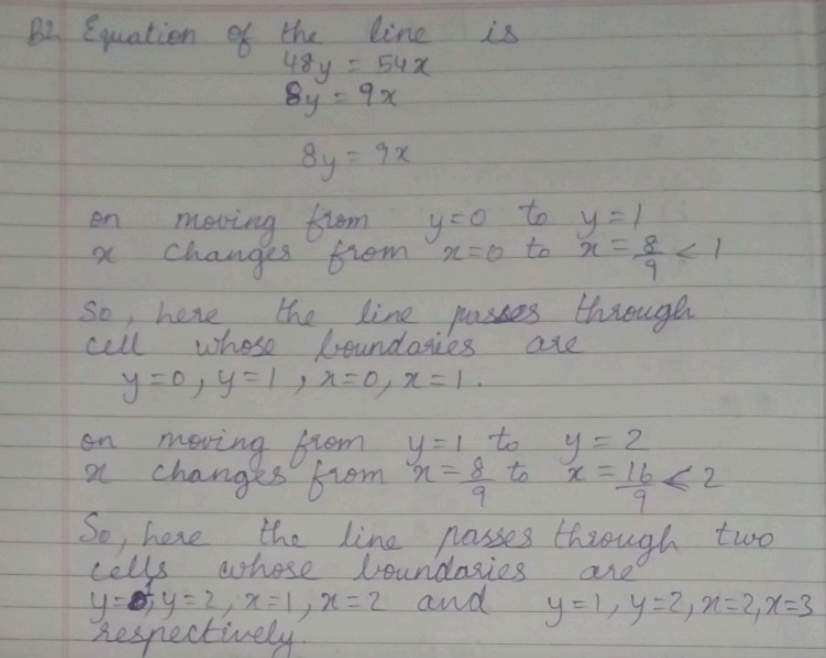 B2. Equation of the line is
48y = 54x
8y = 9x
8y = 9x
on moving from y=0 to y=1
x changes from x=0 to x = 8/9 < 1
So, here the line passes through
cell whose boundaries are
y=0, y=1, x=0, x=1.
on moving from y=1 to y = 2
x changes from x = 8/9 to x = 16/9 < 2
So, here the line passes through two
cells whose boundaries are
y= y=2, x=1, x=2 and y=1, y=2, x=2, x=3
respectively.